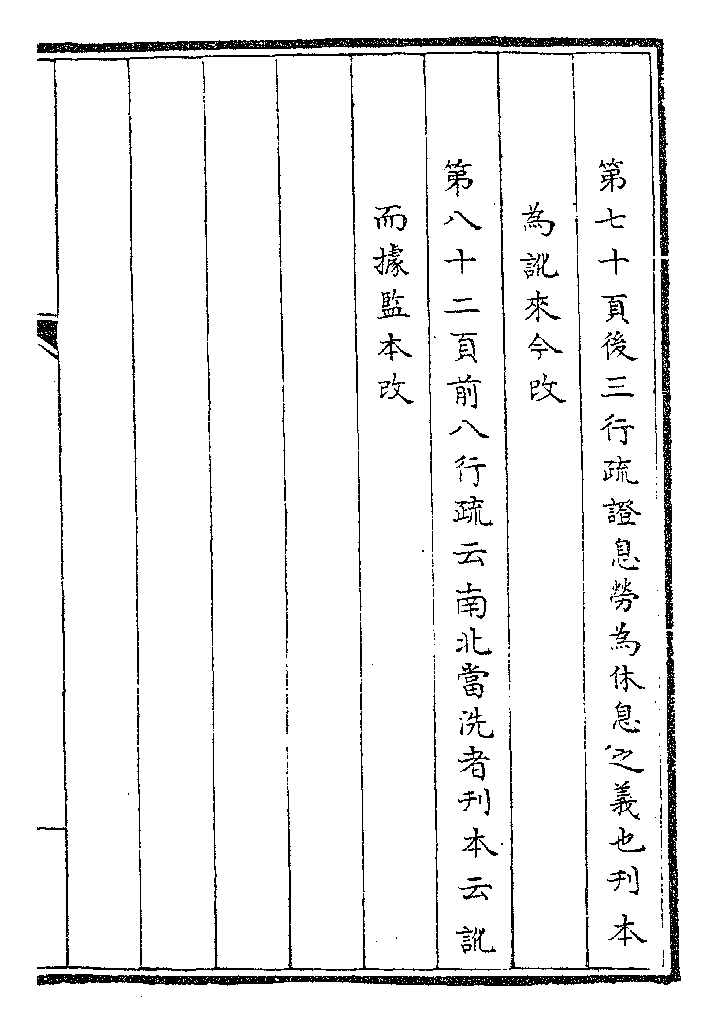 第七十頁後三行疏證息勞為休息之義也刊本
為訛來今改
第八十二頁前八行疏云南北當洗者刊本云訛
而據監本改